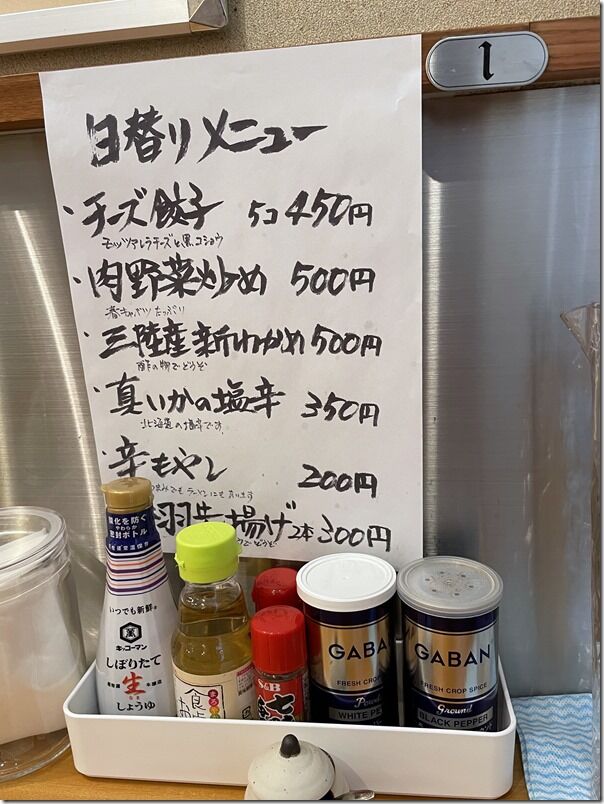 1
日替りメニュー
・チーズ餃子 5コ 450円
モッツァレラチーズと、黒コショウ
・肉野菜炒め 500円
春キャベツ たっぷり
・三陸産新わかめ 500円
酢の物でどうぞ
・真いかの塩辛 350円
北海道の塩辛です。
・辛もやし 200円
でも ラーメンにも
揚げ 2本 300円
でどうぞ
酸化を防ぐ
やわらか
密封ボトル
いつでも新鮮
キッコーマン
しぼりたて
生
しょうゆ
S&B
GABAN
FRESH CROP
WHITE PE
GABAN
FRESH CROP SPICE
Ground
BLACK PEPPER